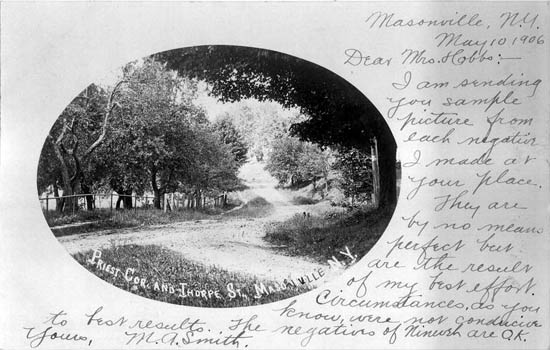 Masonville, N.Y.
May 10 1906
Dear Mrs. Hobbs:-
I am sending
you sample
picture from
each negative
I made at
your place.
They are
by no means
perfect but
are the result
of my best effort.
Circumstances, as you
know, were not conducive
to best results. The negatives of Ninevah are O.K.
Yours, M. A. Smith.
Priest Cor. and Thorpe St., Masonville N.Y.